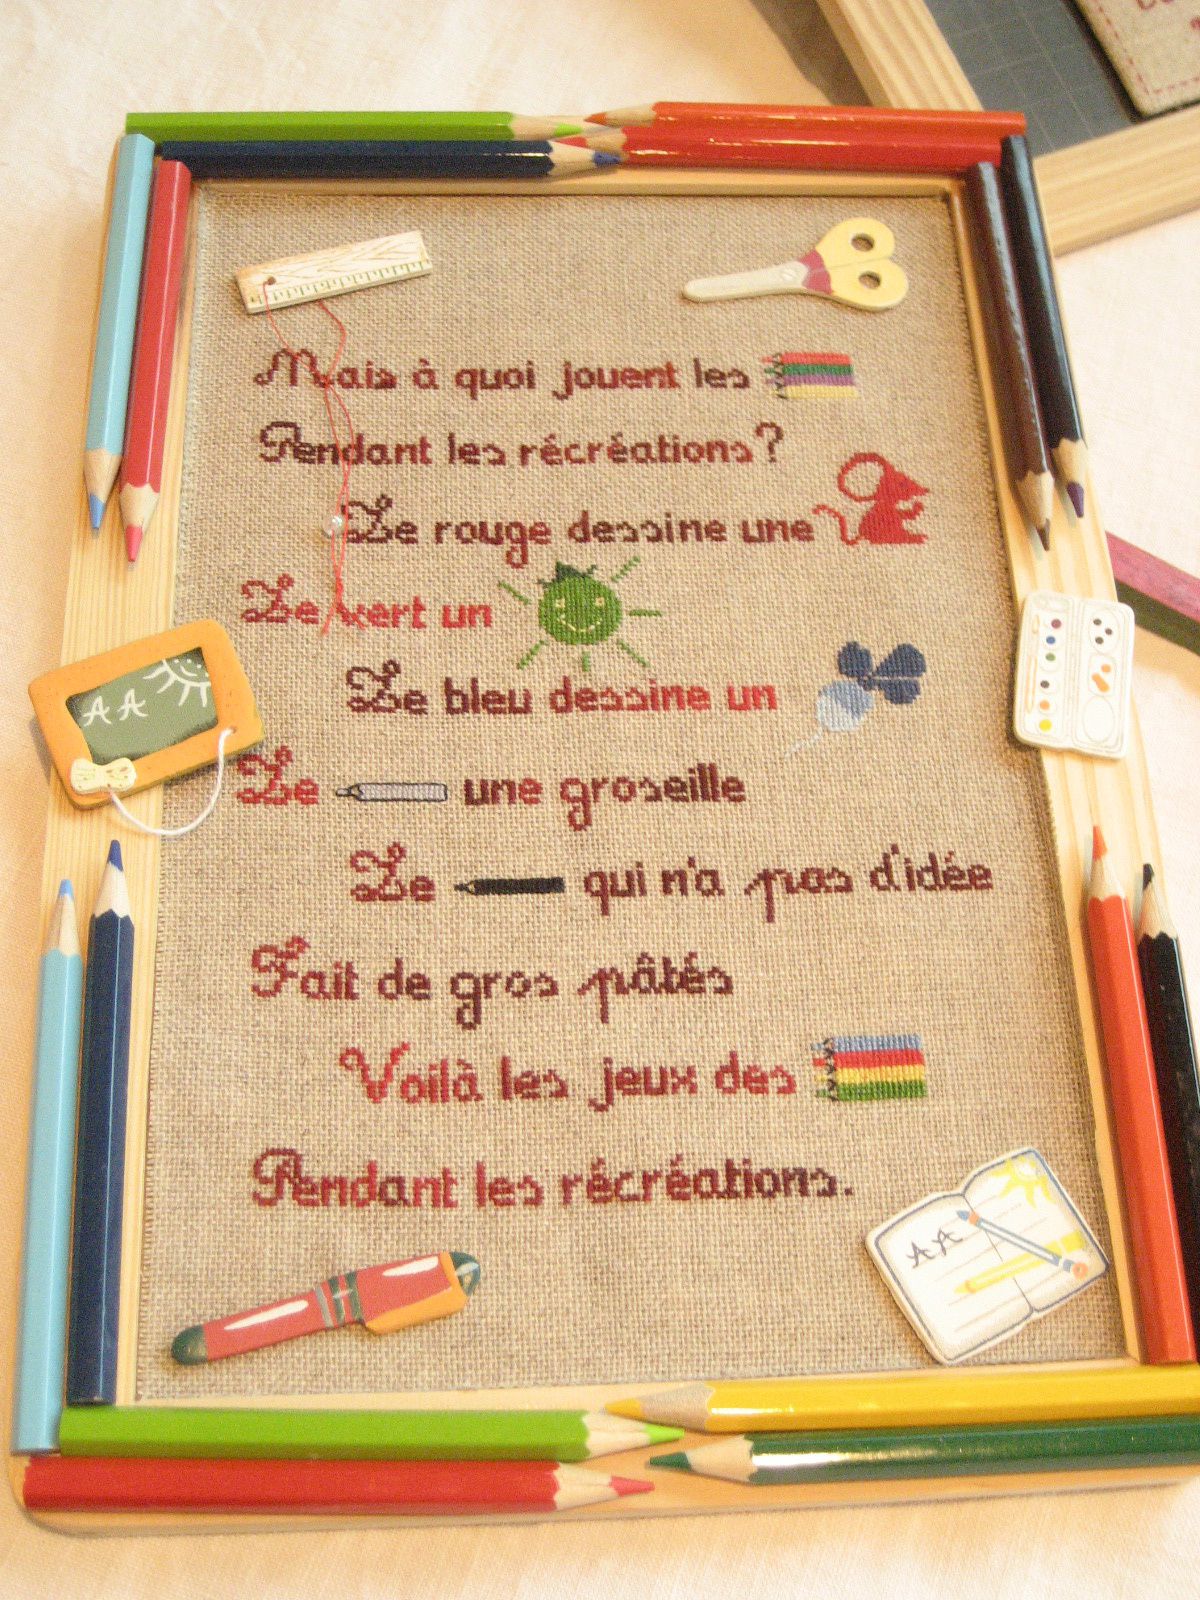 Mais à quoi jouent les
Pendant les récréations?
Le rouge dessine une
Le vert un
Le bleu dessine un
Le une groseille
Le qui n'a pas d'idée
Fait de gros pâtés
Voilà les jeux des
Pendant les récréations.
A A
A A